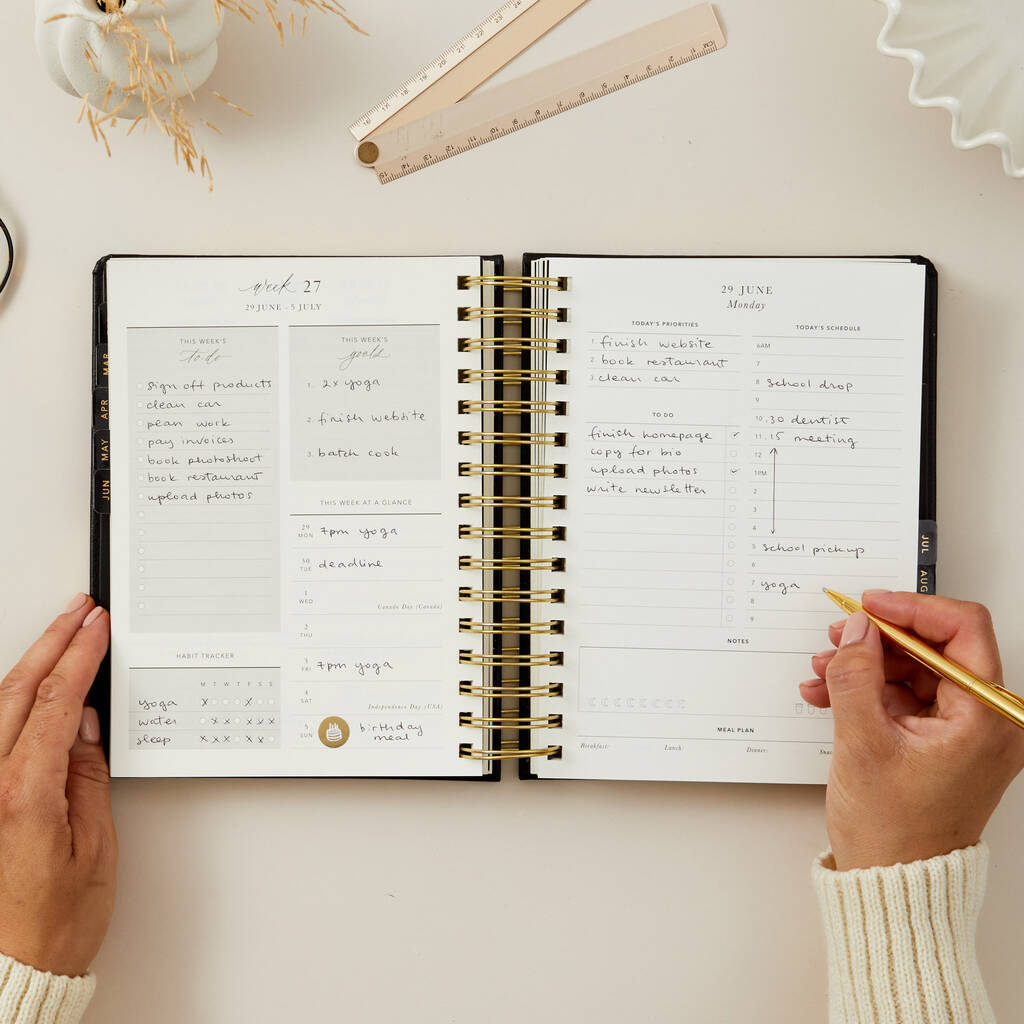 week 27
29 JUNE - 5 JULY
THIS WEEK'S
to do
sign off products
clean car
plan work
pay invoices
book photoshoot
book restaurant
upload photos
THIS WEEK'S
goals
1. 2x yoga
2. finish website
3. batch cook
THIS WEEK AT A GLANCE
29 MON 7pm yoga
30 TUE deadline
1 WED
Canada Day (Canada)
2 THU
3 FRI 7pm yoga
4 SAT
Independence Day (USA)
5 SUN birthday
meal
HABIT TRACKER
M T W T F S S
yoga x x
water x x x x x
sleep x x x x x
MAR
APR
MAY
JUN
29 JUNE
Monday
TODAY'S PRIORITIES
1. finish website
2. book restaurant
3. clean car
TO DO
finish homepage ✓
copy for bio
upload photos ✓
write newsletter
TODAY'S SCHEDULE
6AM
7
8 school drop
9
10 .30 dentist
11 .15 meeting
12
1PM
2
3
4
5 school pickup
6
7 yoga
8
9
NOTES
MEAL PLAN
Breakfast: Lunch: Dinner:
JUL
AUG